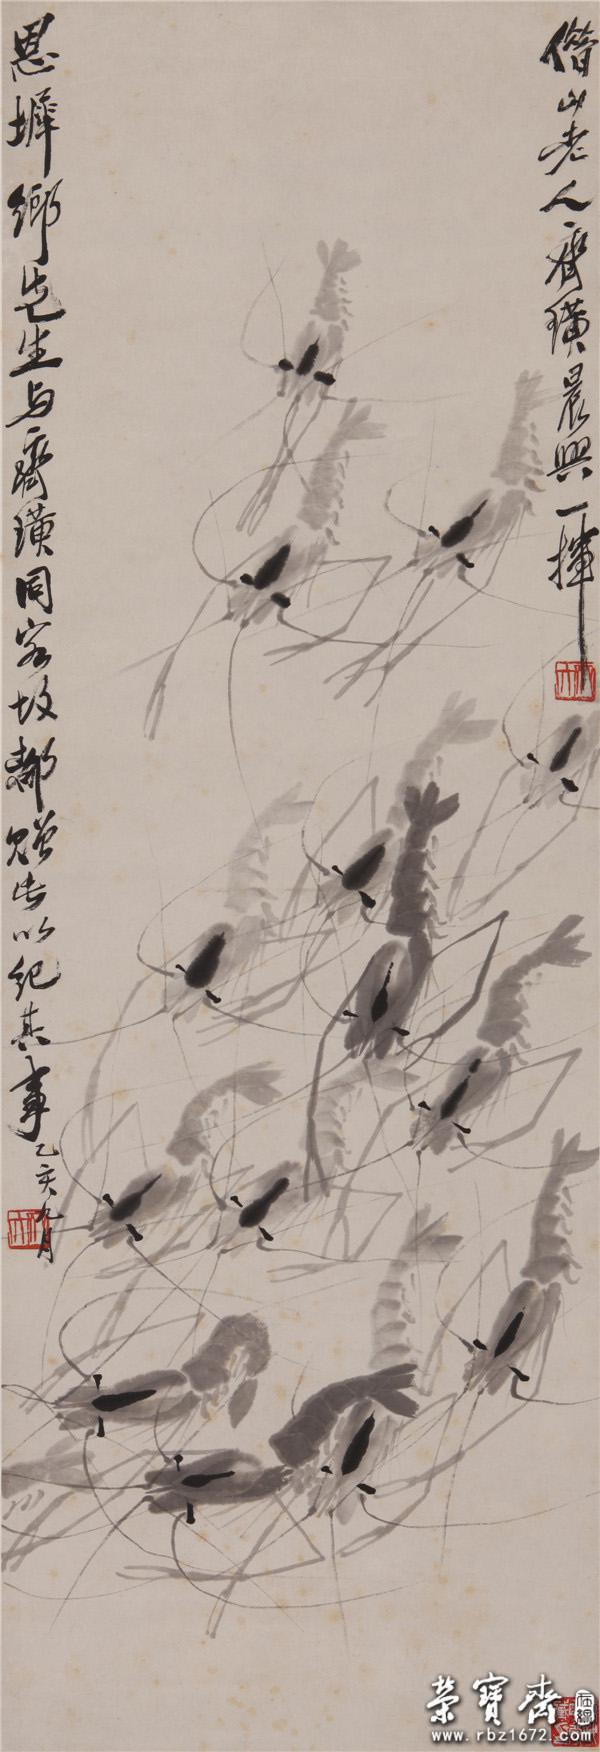 借山老人齊璜晨興一揮
恩墀鄉先生與齊璜同客故都贈此以紀其事乙亥九月
榮寶齋
在線
www.rbz1672.com